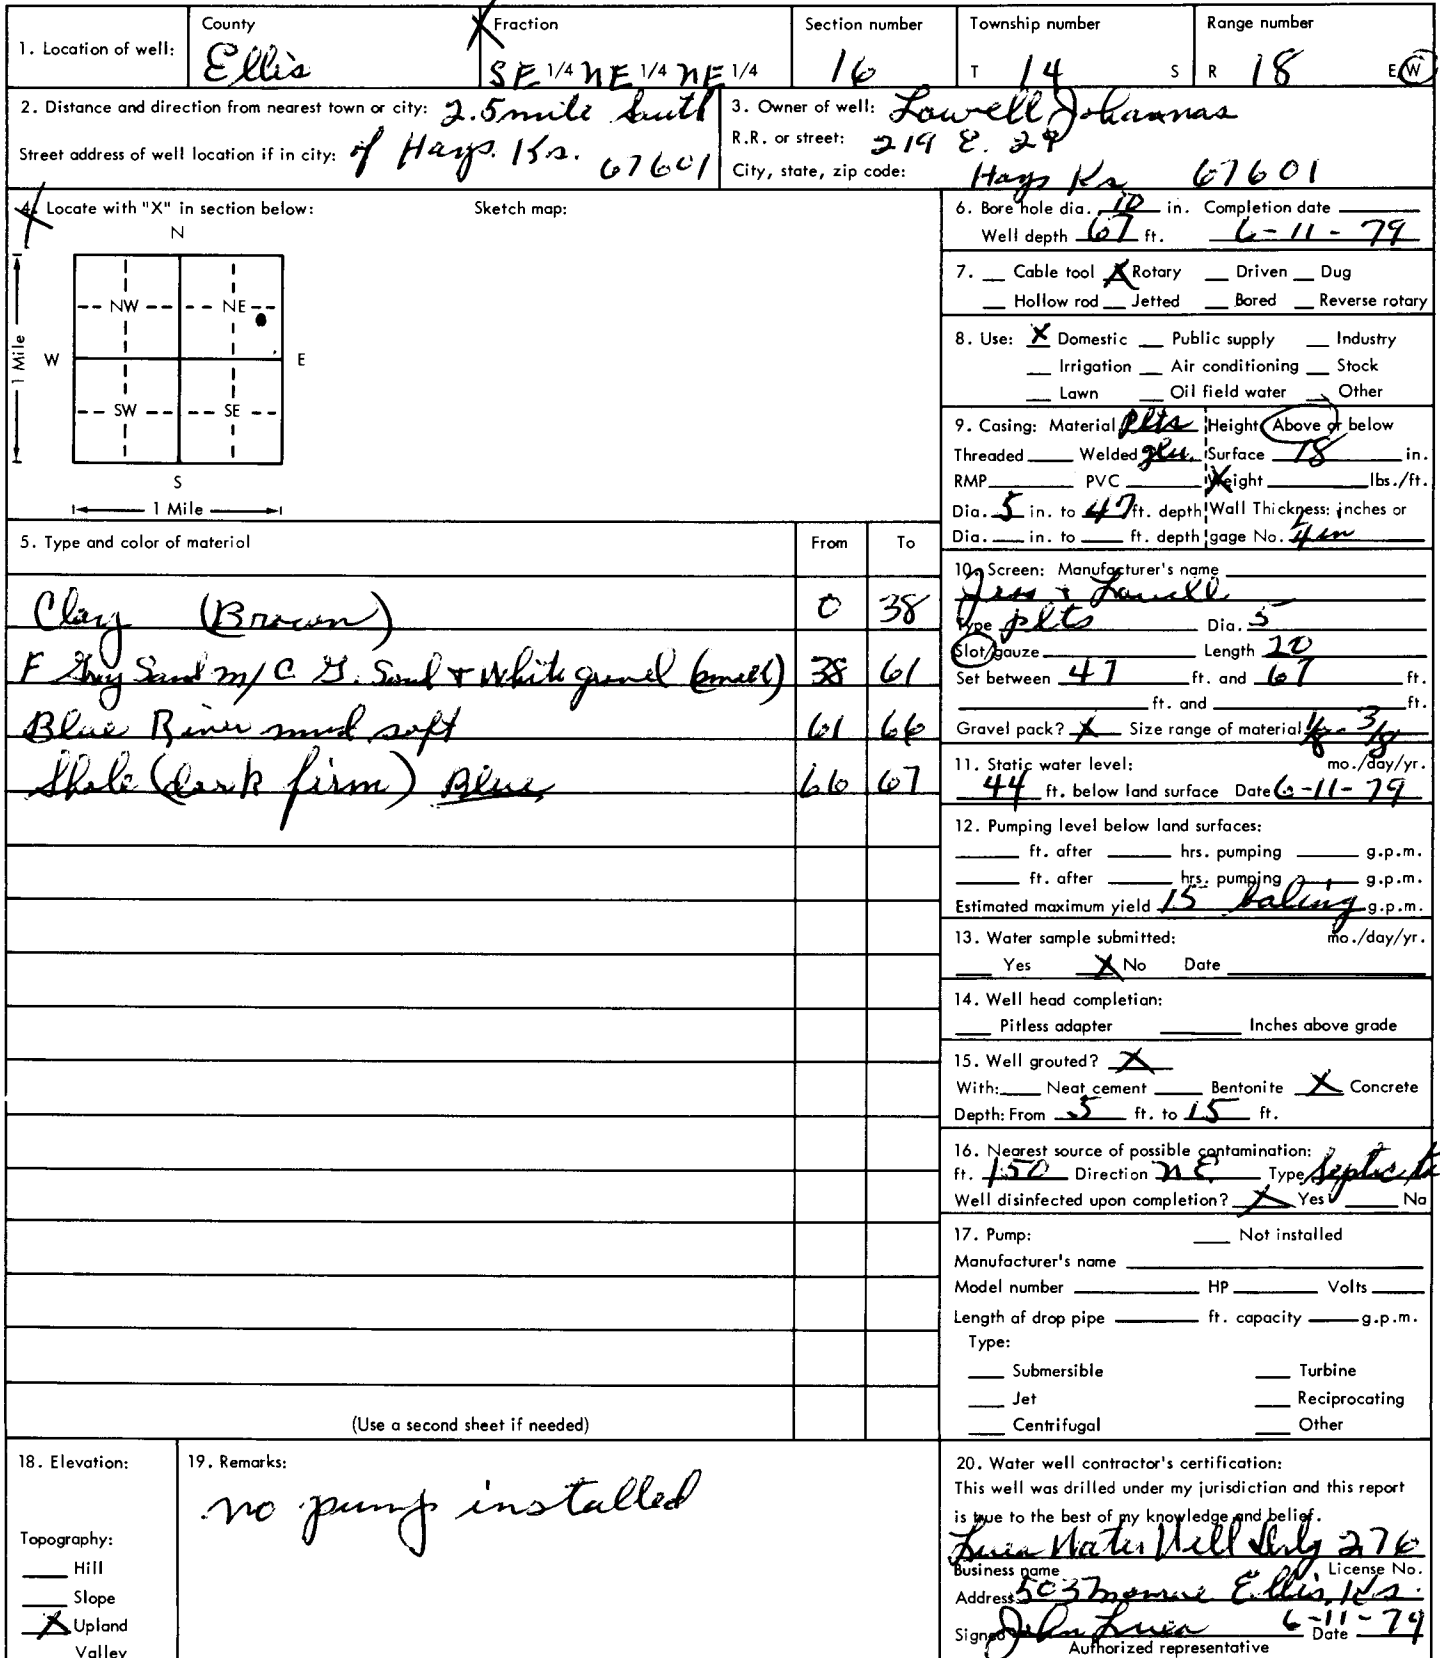 1. Location of well: County Ellis Fraction SE 1/4 NE 1/4 NE 1/4 Section number 16 Township number T 14 S Range number R 18 E W
2. Distance and direction from nearest town or city: 2.5 mile South
of Hays. Ks. 67601
Street address of well location if in city:
3. Owner of well: Lowell Johannas
R.R. or street: 219 E. 29
City, state, zip code: Hays Ks 67601
4. Locate with "X" in section below: Sketch map:
N
NW NE
W E
SW SE
S
1 Mile
1 Mile
5. Type and color of material From To
Clay (Brown) 0 38
F Gray Sand m/C G. Sand + White gravel (small) 38 61
Blue River mud soft 61 66
Shale (dark firm) Blue 66 67
(Use a second sheet if needed)
6. Bore hole dia. 10 in. Completion date
Well depth 67 ft. 6-11-79
7. Cable tool X Rotary Driven Dug
Hollow rod Jetted Bored Reverse rotary
8. Use: X Domestic Public supply Industry
Irrigation Air conditioning Stock
Lawn Oil field water Other
9. Casing: Material plts Height Above or below
Threaded Welded glu. Surface 18 in.
RMP PVC Weight lbs./ft.
Dia. 5 in. to 47 ft. depth Wall Thickness: inches or
Dia. in. to ft. depth gage No. 1/4 in
10. Screen: Manufacturer's name
Jess + Lowell
Type plts Dia. 5
Slot/gauze Length 20
Set between 47 ft. and 67 ft.
ft. and ft.
Gravel pack? X Size range of material 1/8 - 3/8
11. Static water level: mo./day/yr.
44 ft. below land surface Date 6-11-79
12. Pumping level below land surfaces:
ft. after hrs. pumping g.p.m.
ft. after hrs. pumping g.p.m.
Estimated maximum yield 15 baling g.p.m.
13. Water sample submitted: mo./day/yr.
Yes X No Date
14. Well head completion:
Pitless adapter Inches above grade
15. Well grouted? X
With: Neat cement Bentonite X Concrete
Depth: From 5 ft. to 15 ft.
16. Nearest source of possible contamination:
ft. 150 Direction NE Type Septic
Well disinfected upon completion? X Yes No
17. Pump: Not installed
Manufacturer's name
Model number HP Volts
Length of drop pipe ft. capacity g.p.m.
Type:
Submersible Turbine
Jet Reciprocating
Centrifugal Other
18. Elevation:
Topography:
Hill
Slope
X Upland
Valley
19. Remarks:
no pump installed
20. Water well contractor's certification:
This well was drilled under my jurisdiction and this report
is true to the best of my knowledge and belief.
Water Well Drlg 276
Business name License No.
Address 503 Monroe Ellis, Ks.
Signed John 6-11-79 Date
Authorized representative